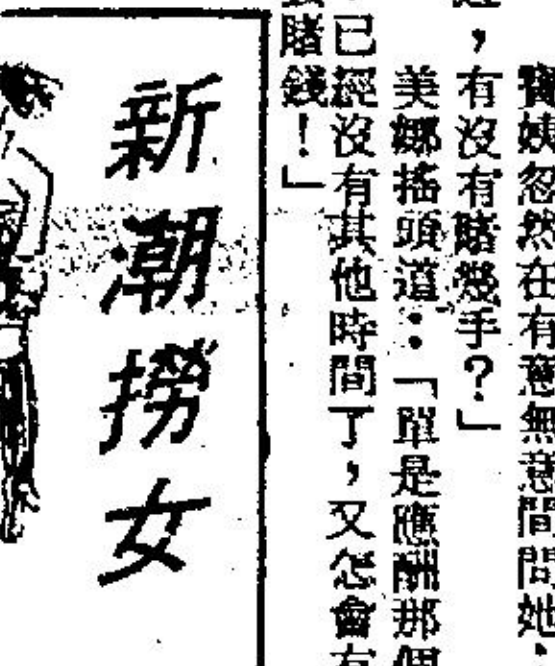 寶姨忽然在有意無意間問她：
，有沒有賭幾手？」
美娜搖頭道：「單是應酬那個
已經沒有其他時間了，又怎會有
賭錢！」
新潮撈女